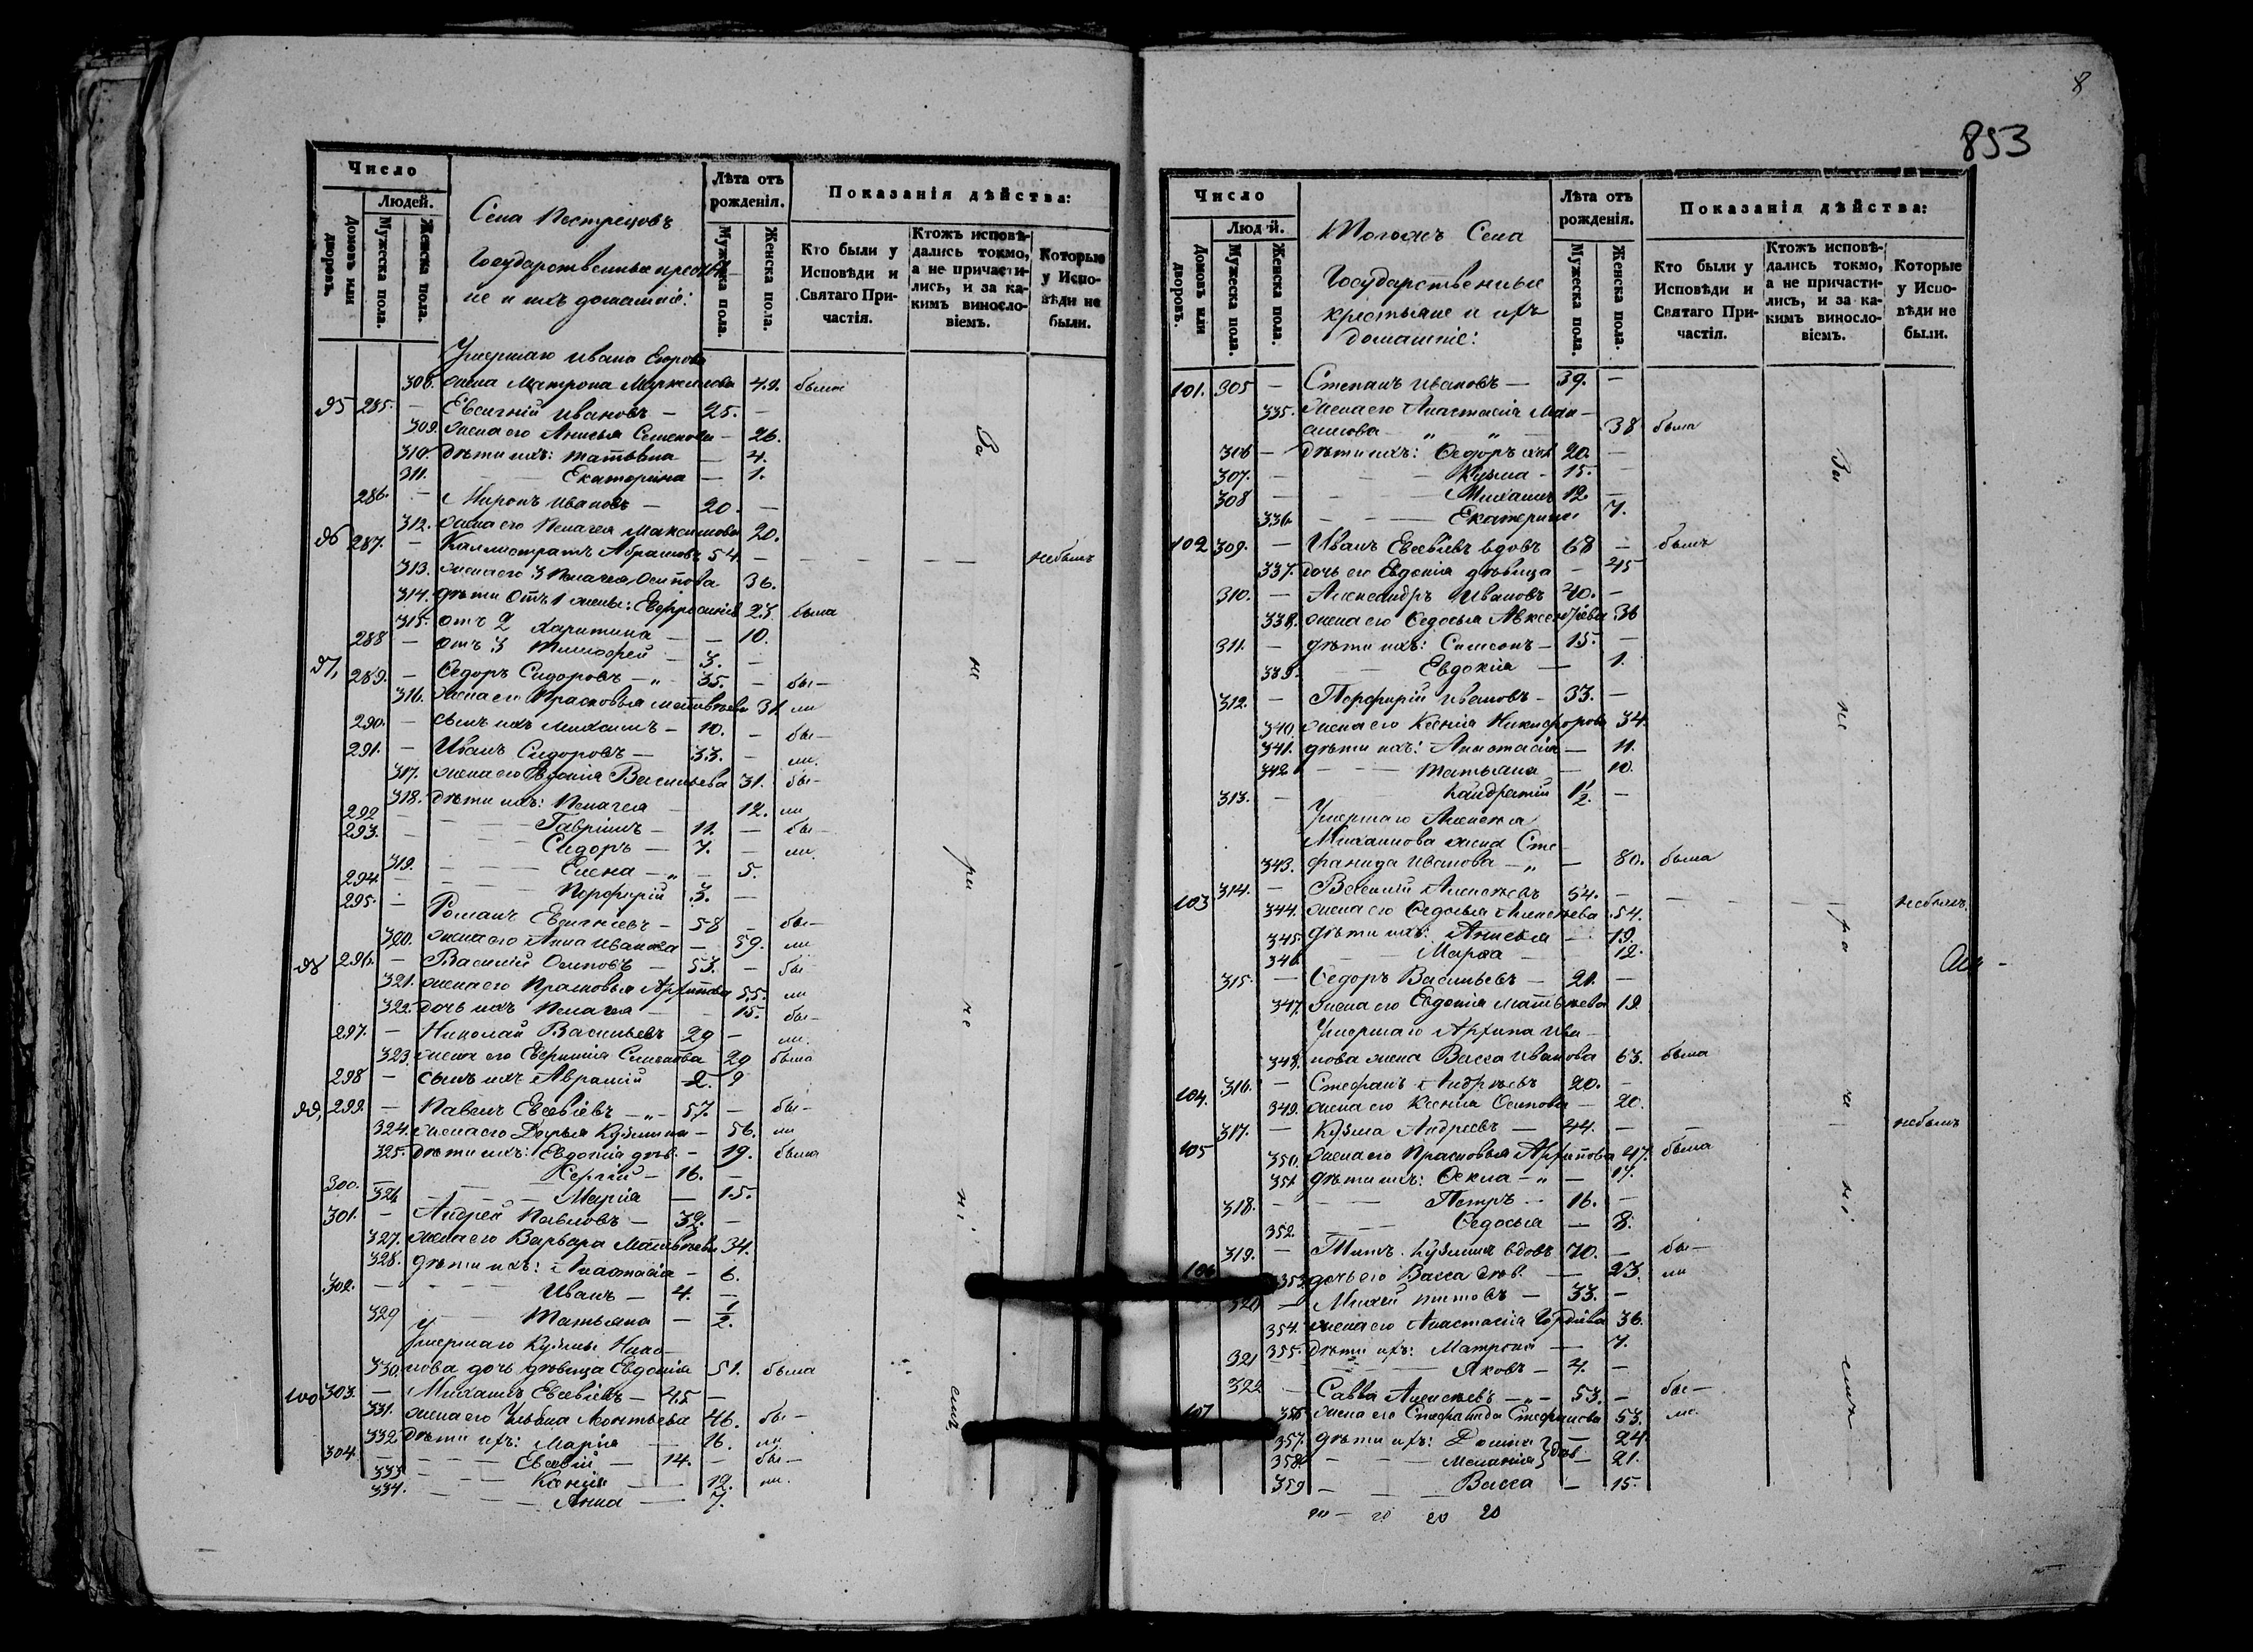 8
853
Число
Людей.
Домовъ или дворовъ.
Мужеска пола.
Женска пола.
Села Пестрецовъ
Государственные крестья-
не и ихъ домашніе:
Лѣта отъ рожденія.
Мужеска пола.
Женска пола.
Показанія дѣйства:
Кто были у Исповѣди и Святаго Причастія.
Ктожъ исповѣдались токмо, а не причастились, и за какимъ винословіемъ.
Которые у Исповѣди не были.
Умершаго Ивана Егорова
308. жена Матрона 49. была
95 285. — Евсигній Ивановъ — 25. —
309. жена его Анисья Семенова — 26.
310. дѣти ихъ: Татьяна — 4.
311. Екатерина — 1.
286. — Миронъ Ивановъ — 20. —
312. жена его Пелагея Максимова 20.
96 287. — Каллистратъ Абрамовъ 54 — небылъ
313. жена его 3 Пелагея Осипова 36.
314. дѣти отъ 1 жены: Евфросинія 23. была
315. отъ 2 Харитина — 10.
288 — отъ 3 Тимофей — 3. —
97, 289. — Ѳедоръ Сидоровъ — 35. — бы—
316. жена его Прасковья Матвѣева 31. ли
290. — сынъ ихъ Михаилъ — 10. — бы—
291. — Иванъ Сидоровъ — 33. — ли.
317. жена его Евдокія Васильева 31. бы—
318. дѣти ихъ: Пелагея — 12. ли
292 — Гавріилъ — 11. — бы—
293. — Сидоръ — 7. — ли.
319. Елена — 5.
294. — Порфирій 3. —
295. — Романъ Евсигнѣевъ — 58 — бы—
320. жена его Анна Иванова — 59. ли
98 296. — Василій Осиповъ — 53. — бы—
321. жена его Прасковья Архипова 55. ли
322. дочь ихъ Пелагея — 15. бы—
297. — Николай Васильевъ 29 — ли.
323. жена его Евфимія Семенова 29 была
298 — сынъ ихъ Авраамій 2. 9
99, 299. — Павелъ Евсевіевъ — 57. — бы—
324. жена его Дарья Кузмина — 56. ли
325. дѣти ихъ: Евдокія дѣв. — 19. была
300. — Сергій — 16. —
326 Марія — 15.
301. — Андрей Павловъ — 32. —
327. жена его Варвара Матвѣева 34.
328. дѣти ихъ: Анастасія — 6.
302. — Иванъ — 4. —
329 Татьяна — 1/2.
Умершаго Кузмы
330. нова дочь дѣвица Евдокія 51. была
100 303. — Михаилъ Евсевіевъ — 45 —
331. жена его Ульяна Леонтьева 46. бы—
332 дѣти ихъ: Марія — 16. ли
304. — Евсевій — 14. — бы—
333 Ксенія — 12. ли.
334. Анна — 7.
Число
Людей.
Домовъ или дворовъ.
Мужеска пола.
Женска пола.
Села
Государственные
крестьяне и ихъ
домашніе:
Лѣта отъ рожденія.
Мужеска пола.
Женска пола.
Показанія дѣйства:
Кто были у Исповѣди и Святаго Причастія.
Ктожъ исповѣдались токмо, а не причастились, и за какимъ винословіемъ.
Которые у Исповѣди не были.
101. 305 — Степанъ Ивановъ — 39. —
335. жена его Анастасія Мак-
симова 38 была
306 — дѣти ихъ: Ѳедоръ 20. —
307. — Кузма — 15. —
308 — Михаилъ 12. —
336. Екатерина 7.
102 309. — Иванъ Евсевіевъ вдовъ 68 — былъ
337. дочь его Евдокія дѣвица — 45
310. — Александръ Ивановъ 40. —
338. жена его Ѳедосья Авксентіева 36
311. — дѣти ихъ: Симеонъ — 15. —
339. Евдокія — 1.
312. — Порфирій Ивановъ — 33. —
340. жена его Ксенія Никифорова 34.
341. дѣти ихъ: Анастасія — 11.
342 Татьяна — 10.
313. — Кандратій 1/2. —
Умершаго Алексѣя
Михаилова жена Сте-
343. фанида Иванова — 80. была
103 314. — Василій Алексѣевъ 54. — небылъ.
344. жена его Ѳедосья Алексѣева 54.
345. дѣти ихъ: Анисья — 19.
346. Марѳа — 12.
315. — Ѳедоръ Васильевъ — 21. —
347. жена его Евдокія Матвѣева 19
Умершаго Архипа Ива-
348. нова жена Васса Иванова 63. была
104. 316. — Стефанъ Андреевъ 20. —
349. жена его Ксенія Осипова — 20.
105 317. — Кузма Андреевъ — 44. — небылъ
350. жена его Прасковья Архипова 47. была
351. дѣти ихъ: Ѳекла — 17.
318. — Петръ — 16. —
352. Ѳедосья — 8.
106 319. — Титъ Кузминъ вдовъ 70. — бы—
353. дочь его Васса дѣв. — 23. ли
320. — Михей Титовъ — 33. —
354. жена его Анастасія Гордіева 36.
355. дѣти ихъ: Матрона — 7.
321 — Яковъ — 4. —
107 322 — Савва Алексѣевъ — 53. — бы—
356 жена его Стефанида Стефанова 53. ли.
357. дѣти ихъ: — 24.
358. Меланія дѣв. — 21.
359 Васса — 15.
20